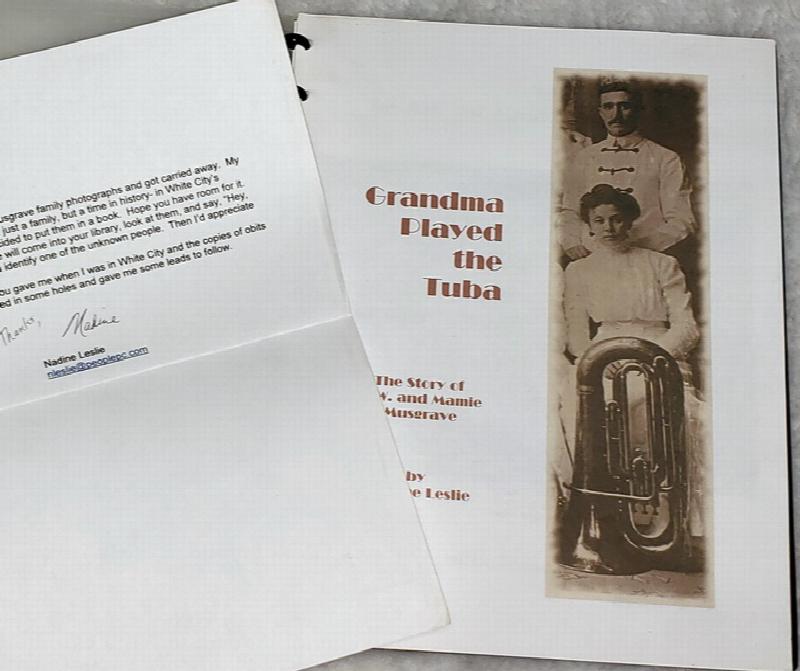 usgrave family photographs and got carried away. My
just a family, but a time in history- in White City's
ided to put them in a book. Hope you have room for it.
will come into your library, look at them, and say, "Hey,
identify one of the unknown people. Then I'd appreciate
ou gave me when I was in White City and the copies of obits
ed in some holes and gave me some leads to follow.
Thanks,
Nadine
Nadine Leslie
nleslie@peoplepc.com
Grandma
Played
the
Tuba
The Story of
W. and Mamie
Musgrave
by
e Leslie